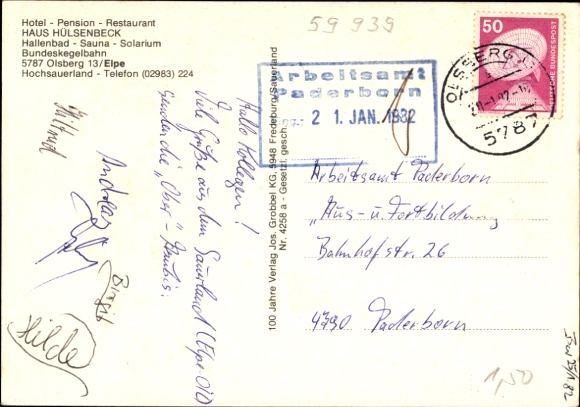 Hotel - Pension - Restaurant
HAUS HÜLSENBECK
Hallenbad - Sauna - Solarium
Bundeskegelbahn
5787 Olsberg 13/Elpe
Hochsauerland - Telefon (02983) 224
59 939
50
DEUTSCHE BUNDESPOST
OLSBERG
5787
Arbeitsamt
Paderborn
2 1. JAN. 1982
Hallo Kollegen!
Viele Grüße aus dem Sauerland (Elpe-Old)
senden die „Ober"-
Wilfried
Andreas
Birgit
Hilde
100 Jahre Verlag Jos. Grobbel KG, 5948 Fredeburg/Sauerland
Nr. 4258 a - Gesetzl. gesch.
Arbeitsamt Paderborn
„Aus- u. Fortbildung
Bahnhofstr. 26
4790 Paderborn
1,50